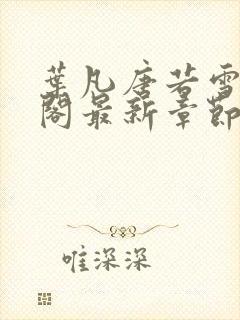 葉凡唐若雪
閣最新章節
唯深深